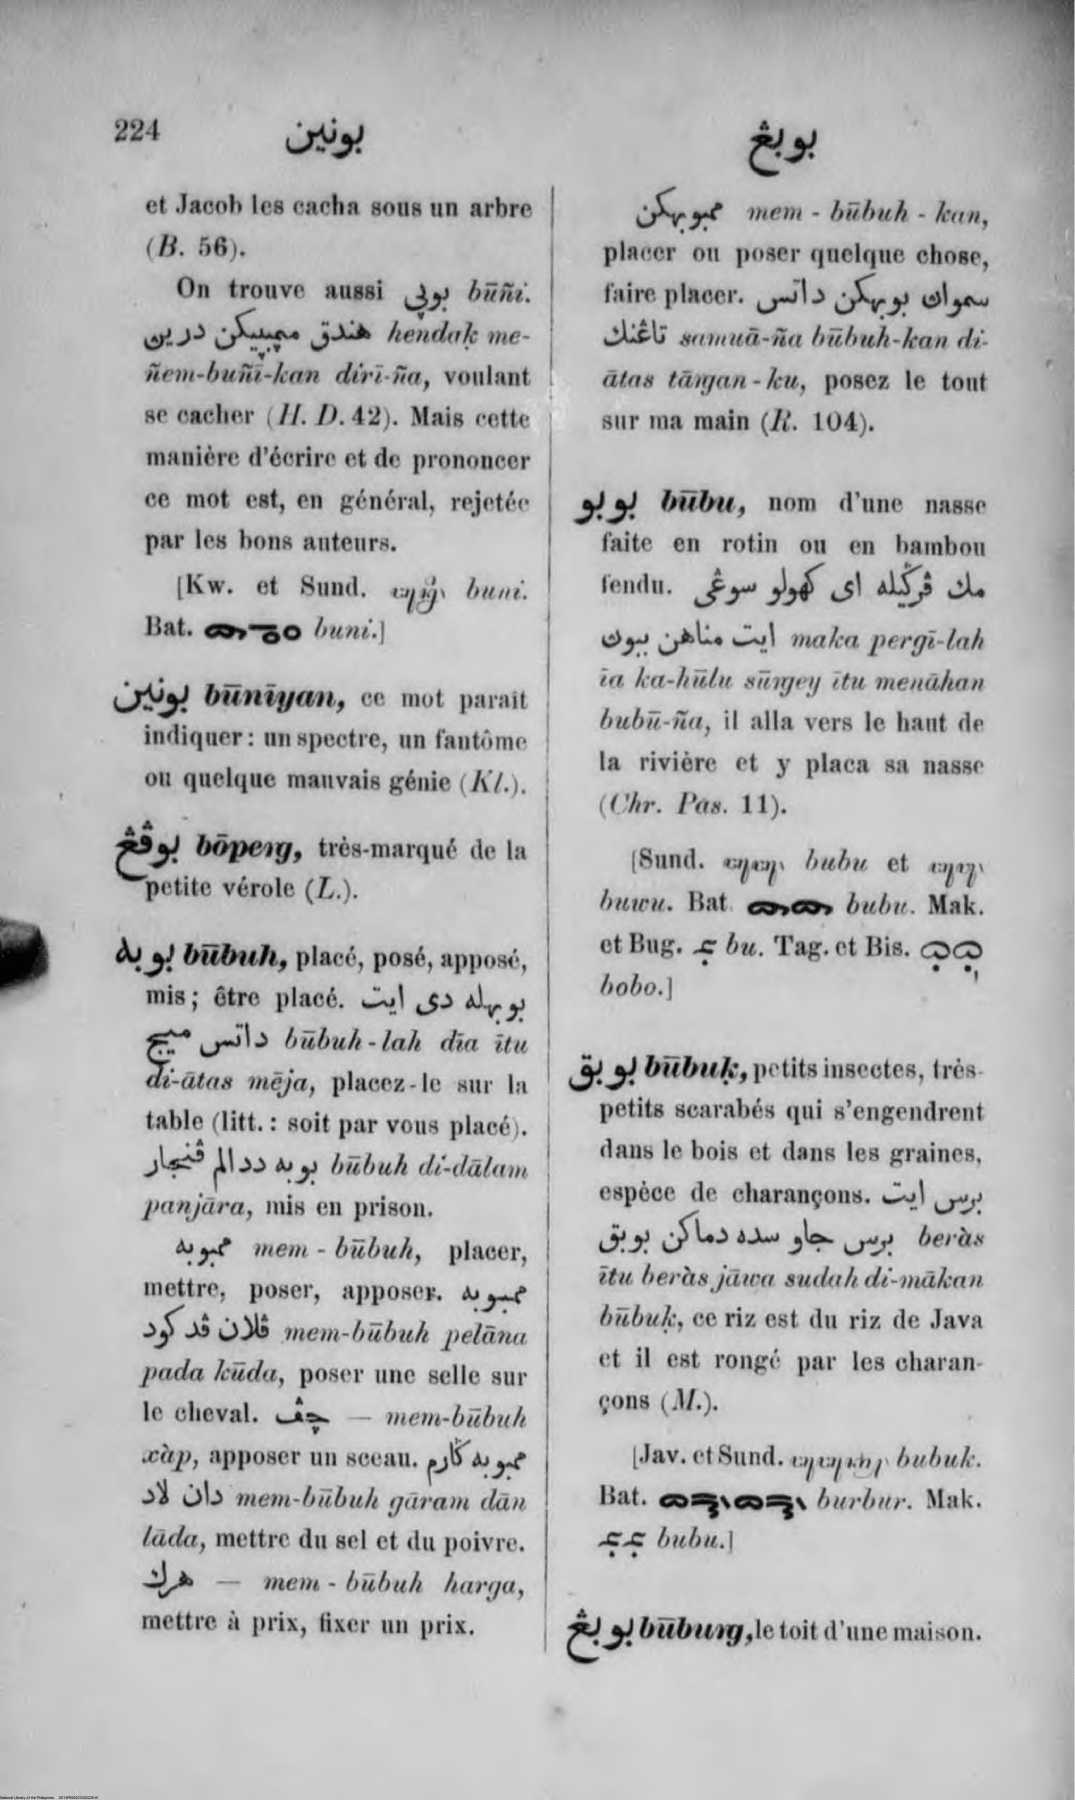 224 بونين بوبڠ
et Jacob les cacha sous un arbre
(B. 56).
On trouve aussi بوڽي būñi.
هندق مڽمبڽيكن درين hendaḳ me-
ñem-buñī-kan dirī-ña, voulant
se cacher (H. D. 42). Mais cette
manière d'écrire et de prononcer
ce mot est, en général, rejetée
par les bons auteurs.
[Kw. et Sund. buni.
Bat. buni.]
بونين būnīyan, ce mot paraît
indiquer: un spectre, un fantôme
ou quelque mauvais génie (Kl.).
بوڤڠ bōpeng, très-marqué de la
petite vérole (L.).
بوبه būbuh, placé, posé, apposé,
mis; être placé. بوبهله دي ايت
داتس ميج būbuh-lah dīa ītu
di-ātas mēja, placez-le sur la
table (litt.: soit par vous placé).
بوبه ددالم ڤنجار būbuh di-dālam
panjāra, mis en prison.
ممبوبه mem-būbuh, placer,
mettre, poser, apposer. ممبوبه
ڤلان ڤد كود mem-būbuh pelāna
pada kūda, poser une selle sur
le cheval. چڤ — mem-būbuh
xàp, apposer un sceau. ممبوبه ݢارم
دان لاد mem-būbuh gāram dān
lāda, mettre du sel et du poivre.
هرݢ — mem-būbuh harga,
mettre à prix, fixer un prix.
ممبوبهكن mem-būbuh-kan,
placer ou poser quelque chose,
faire placer. سموان بوبهكن داتس
تاڠنك samuā-ña būbuh-kan di-
ātas tāngan-ku, posez le tout
sur ma main (R. 104).
بوبو būbu, nom d'une nasse
faite en rotin ou en bambou
fendu. مك ڤرݢيله اي كهولو سوڠي
ايت مناهن ببون maka pergī-lah
īa ka-hūlu sūngey ītu menāhan
bubū-ña, il alla vers le haut de
la rivière et y placa sa nasse
(Chr. Pas. 11).
[Sund. bubu et
buwu. Bat bubu. Mak.
et Bug. bu. Tag. et Bis.
bobo.]
بوبق būbuḳ, petits insectes, très-
petits scarabés qui s'engendrent
dans le bois et dans les graines,
espèce de charançons. برس ايت
برس جاو سده دماكن بوبق beràs
ītu beràs jāwa sudah di-mākan
būbuḳ, ce riz est du riz de Java
et il est rongé par les charan-
çons (M.).
[Jav. et Sund. bubuk.
Bat. burbur. Mak.
bubu.]
بوبڠ būbung, le toit d'une maison.